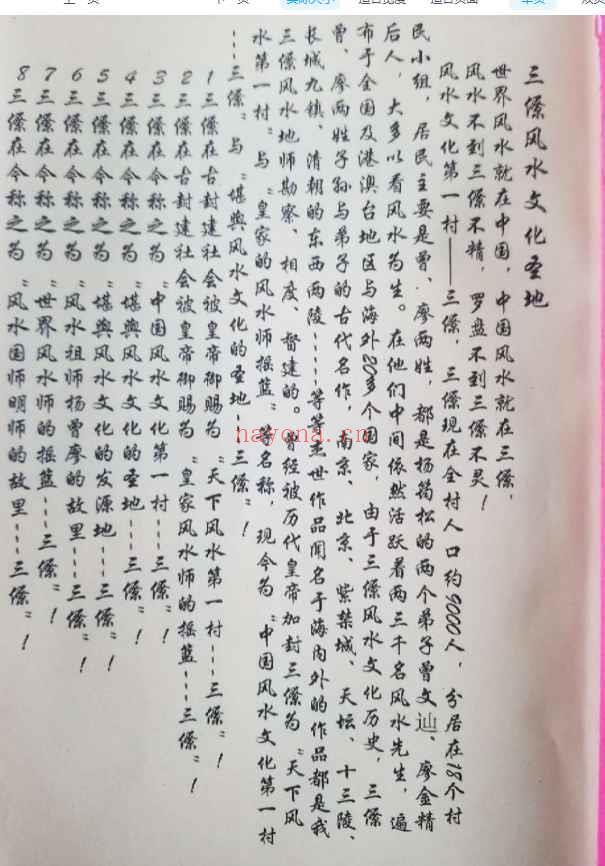 三僚风水文化圣地
世界风水就在中国，中国风水就在三僚，
风水不到三僚不精，罗盘不到三僚不灵！
风水文化第一村——三僚，三僚现在全村人口约9000人，分居在18个村
民小组，居民主要是曾、廖两姓，都是杨筠松的两个弟子曾文辿、廖金精
后人，大多以看风水为生。在他们中间依然活跃着两三千名风水先生，遍
布于全国及港澳台地区与海外20多个国家，由于三僚风水文化历史，三僚
曾、廖两姓子孙与弟子的古代名作，南京、北京、紫禁城、天坛、十三陵、
长城九镇、清朝的东西两陵……等等盖世作品闻名于海内外的作品都是我
三僚风水地师勘察、相度、督建的。曾经被历代皇帝加封三僚为“天下风
水第一村”与“皇家的风水师摇篮”等名称，现今为“中国风水文化第一村
---三僚”与“堪舆风水文化的圣地---三僚”！
1三僚在古封建社会被皇帝御赐为“天下风水第一村---三僚”！
2三僚在古封建社会被皇帝御赐为“皇家风水师的摇篮---三僚”！
3三僚在今称之为“中国风水文化第一村---三僚”！
4三僚在今称之为“堪舆风水文化的圣地---三僚”！
5三僚在今称之为“堪舆风水文化的发源地---三僚”！
6三僚在今称之为“风水祖师杨曾廖的故里---三僚”！
7三僚在今称之为“世界风水师的摇篮---三僚”！
8三僚在今称之为“风水国师明师的故里---三僚”！
nayona.cn